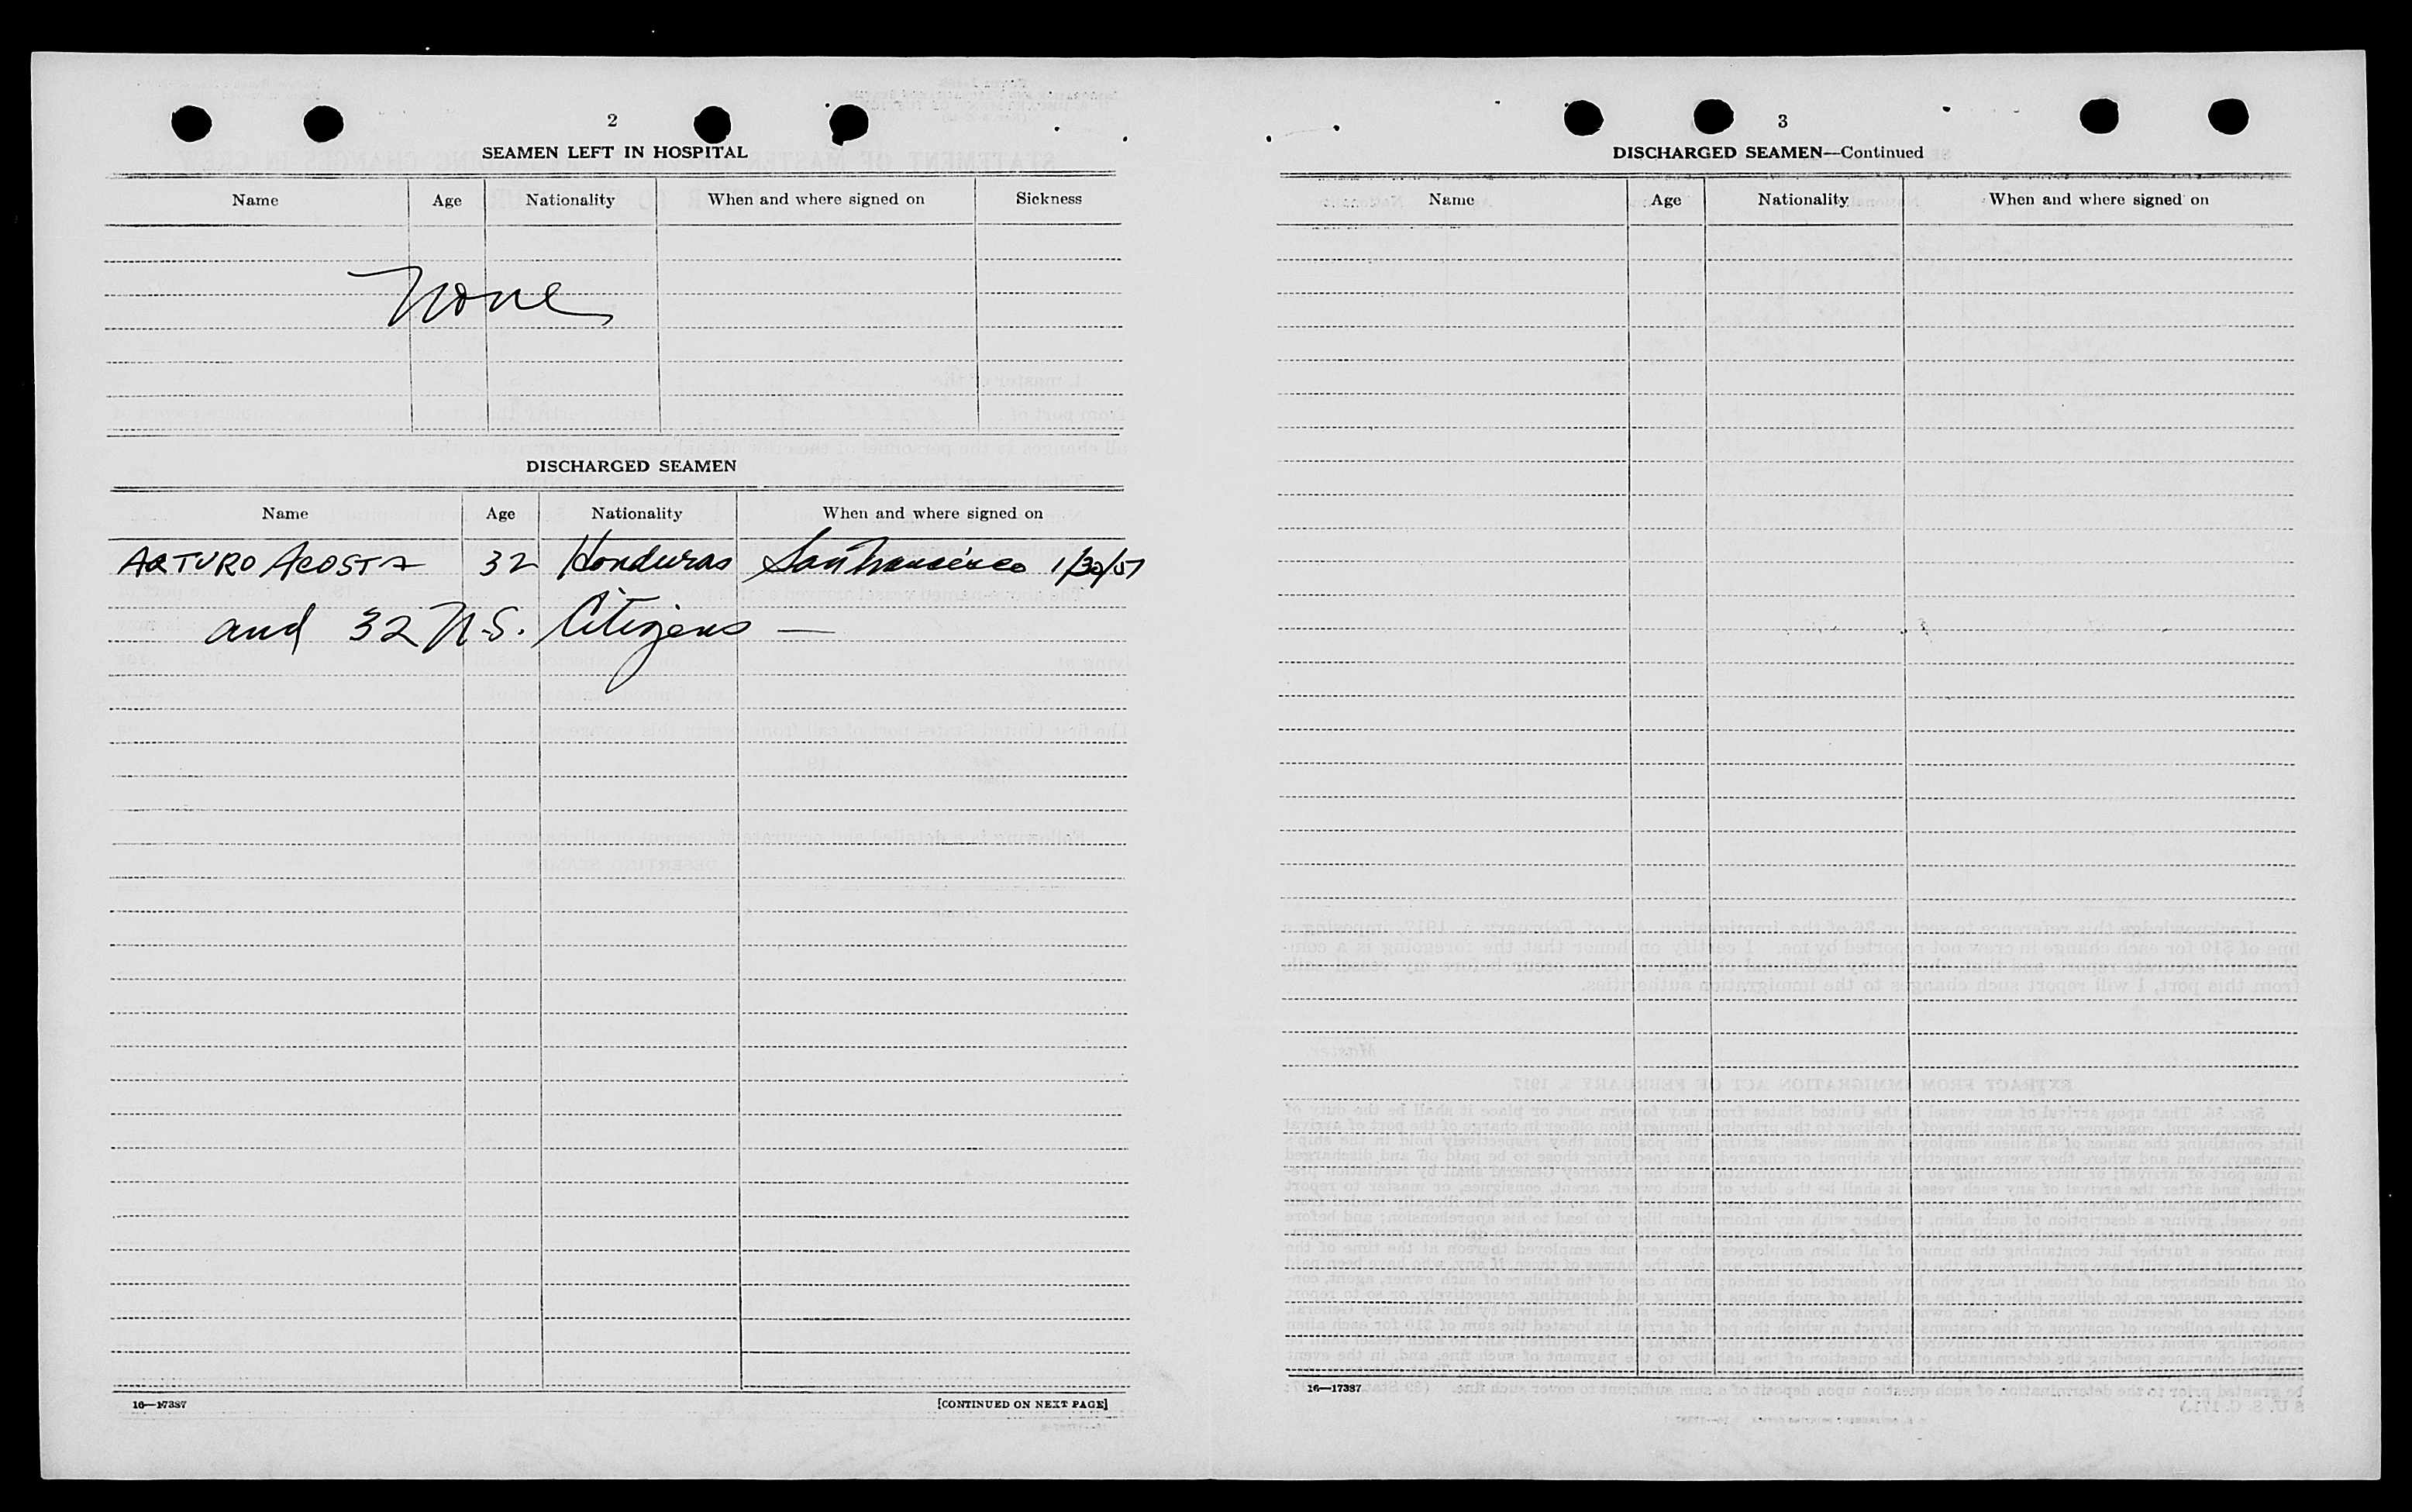 2
SEAMEN LEFT IN HOSPITAL
Name Age Nationality When and where signed on Sickness
None
DISCHARGED SEAMEN
Name Age Nationality When and where signed on
ARTURO ACOSTA 32 Honduras San Francisco 1/30/51
and 32 U.S. Citizens —
16—17387
[CONTINUED ON NEXT PAGE]
3
DISCHARGED SEAMEN—Continued
Name Age Nationality When and where signed on
16—17387